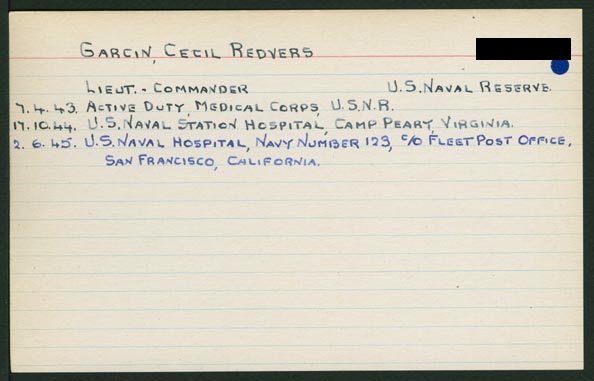 GARCIN, CECIL REDVERS
LIEUT.- COMMANDER U.S. NAVAL RESERVE.
7.4.43. ACTIVE DUTY, MEDICAL CORPS, U.S.N.R.
17.10.44. U.S. NAVAL STATION HOSPITAL, CAMP PEARY, VIRGINIA.
2.6.45. U.S. NAVAL HOSPITAL, NAVY NUMBER 123, C/O FLEET POST OFFICE,
SAN FRANCISCO, CALIFORNIA.